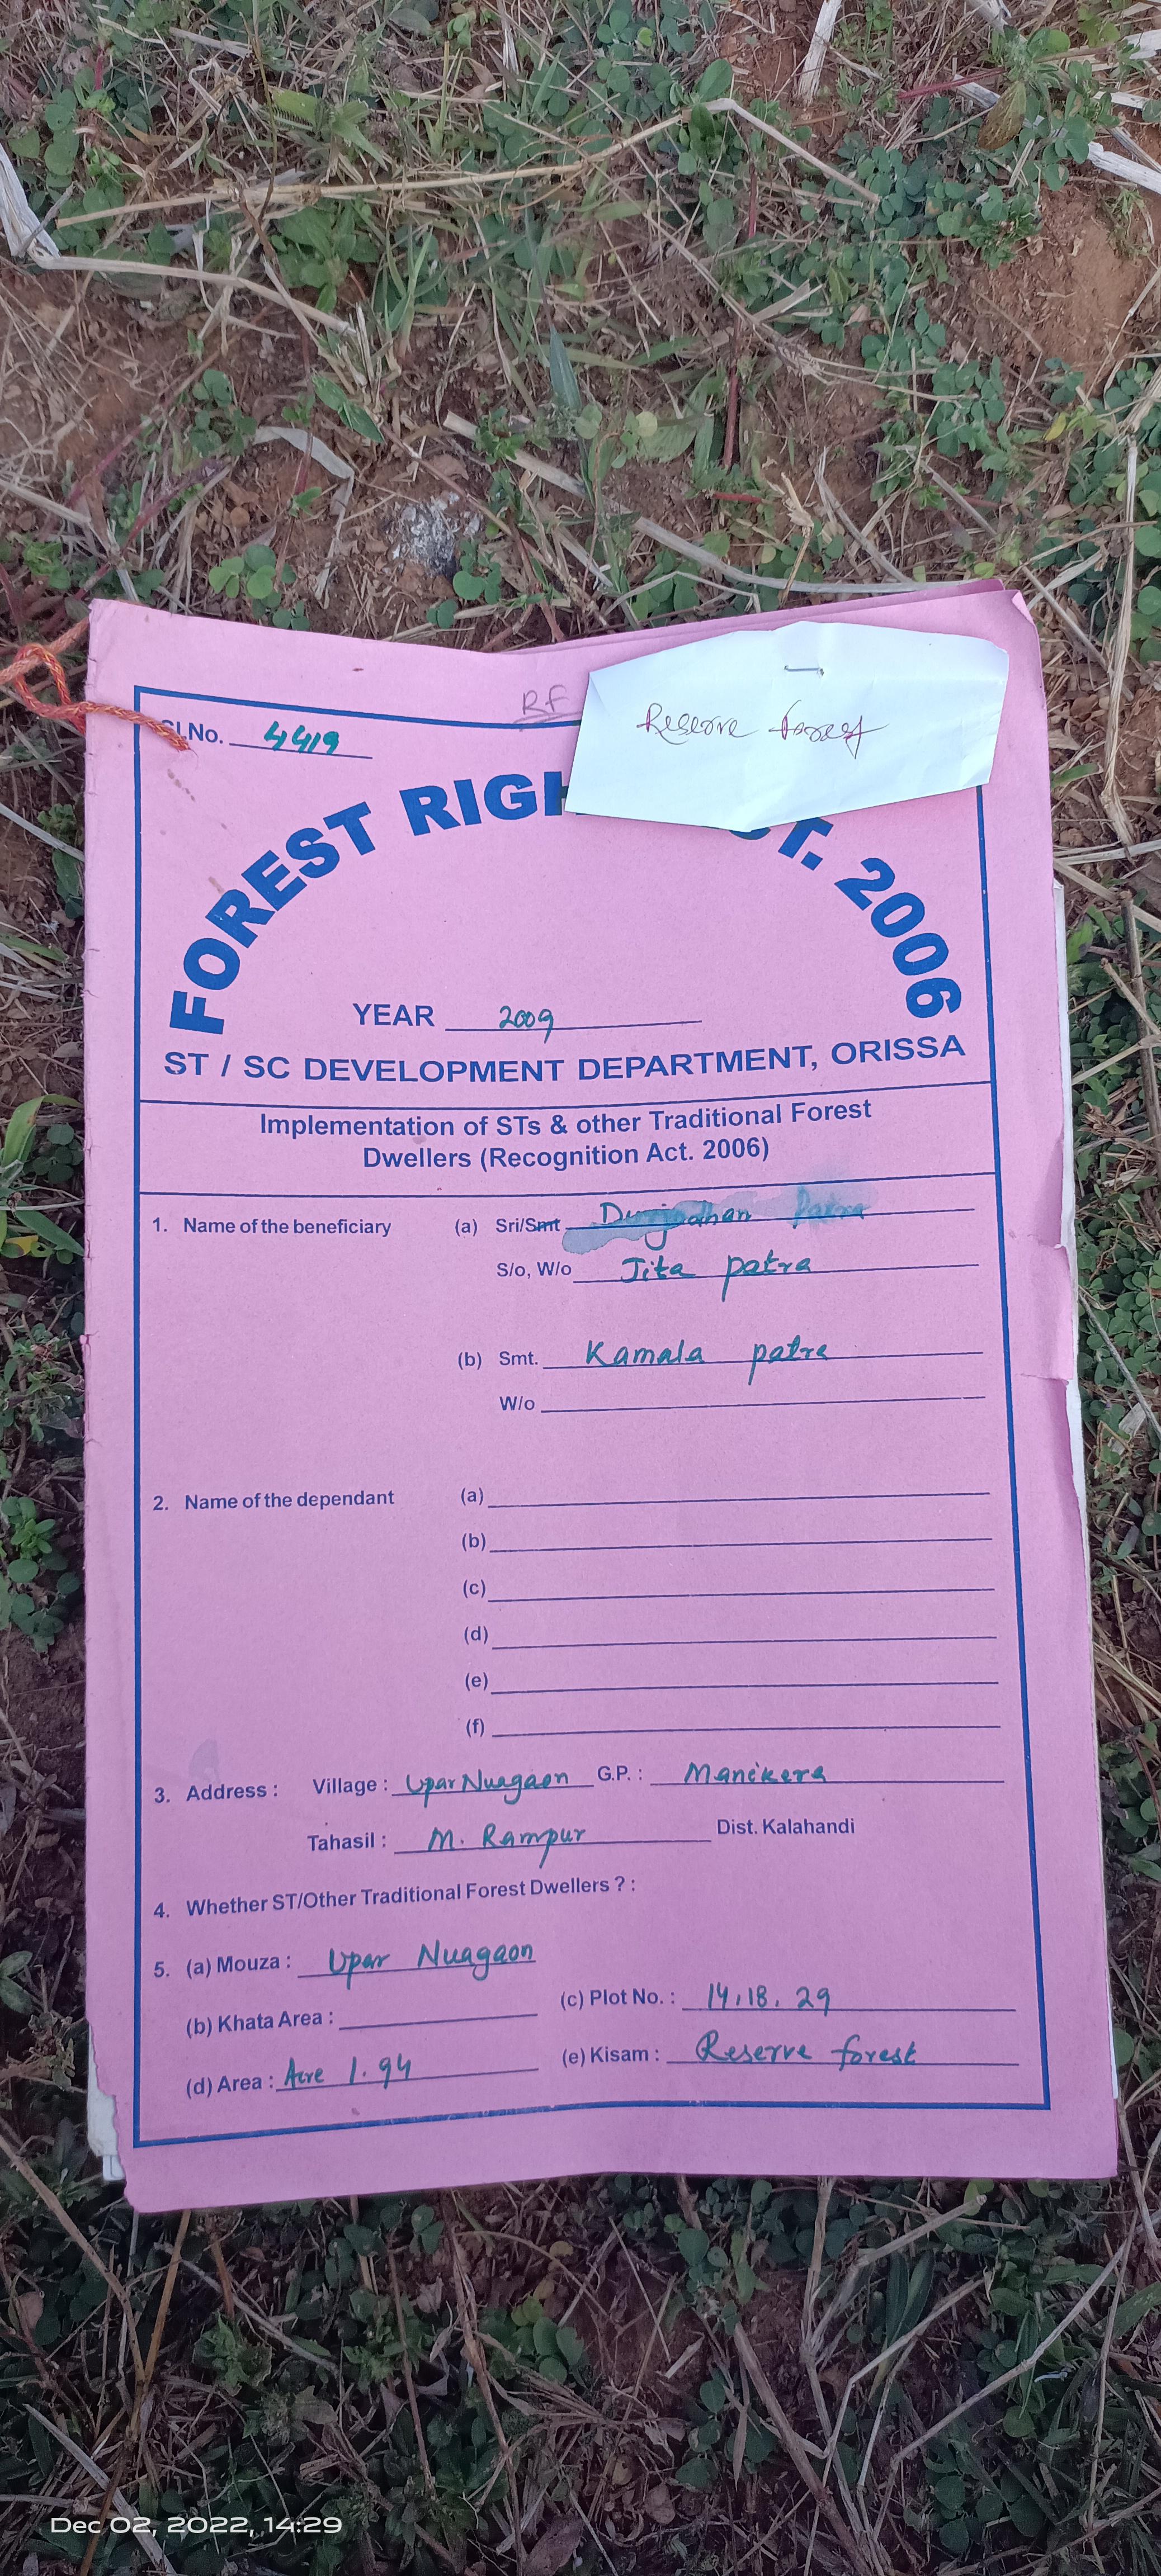 RF
Reserve forest
Sl.No. 4419
FOREST RIGH CT. 2006
YEAR 2009
ST / SC DEVELOPMENT DEPARTMENT, ORISSA
Implementation of STs & other Traditional Forest
Dwellers (Recognition Act. 2006)
1. Name of the beneficiary (a) Sri/Smt Patra
S/o, W/o Jita patra
(b) Smt. Kamala patra
W/o
2. Name of the dependant (a)
(b)
(c)
(d)
(e)
(f)
3. Address : Village : Upar Nuagaon G.P. : Manikera
Tahasil : M. Rampur Dist. Kalahandi
4. Whether ST/Other Traditional Forest Dwellers ? :
5. (a) Mouza : Upar Nuagaon
(b) Khata Area : (c) Plot No. : 14,18, 29
(d) Area : Acre 1.94 (e) Kisam : Reserve forest
Dec 02, 2022, 14:29